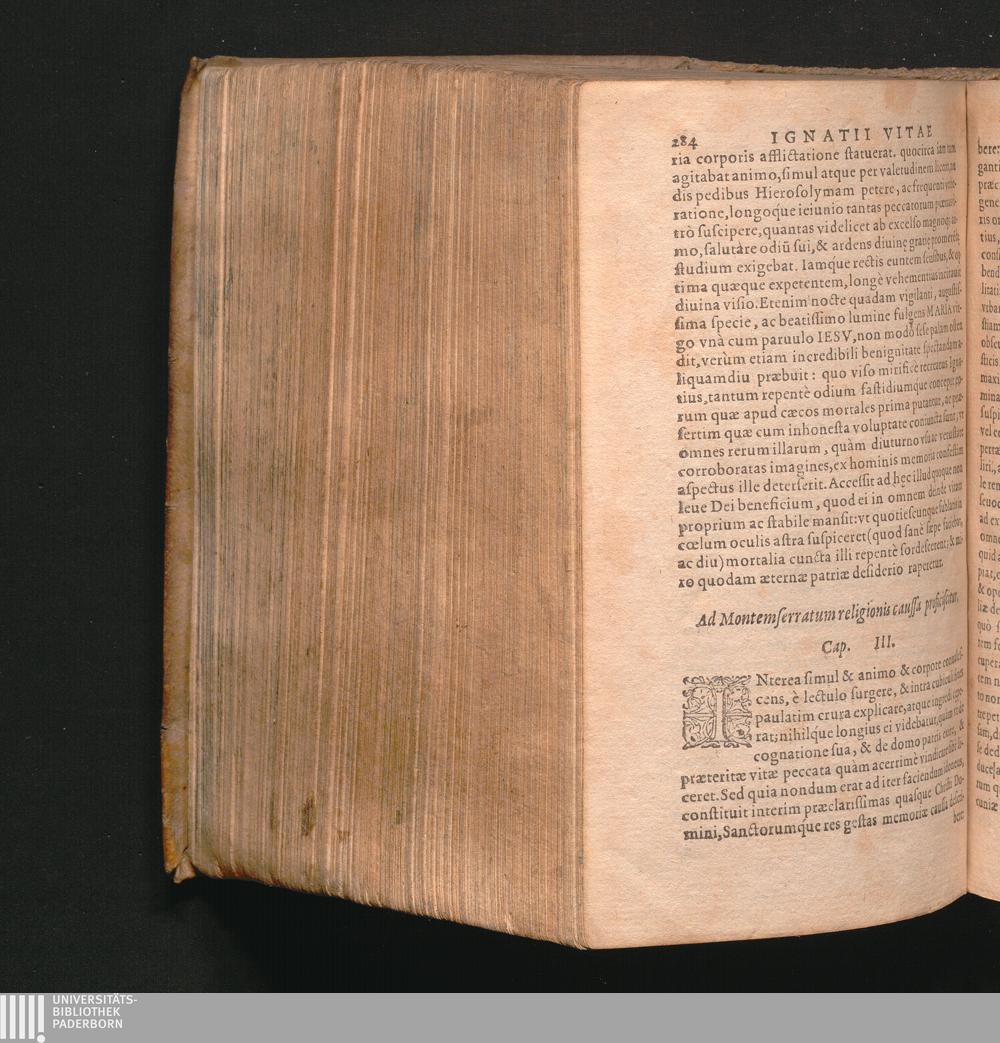 284 IGNATII VITAE
ria corporis afflictatione ſtatuerat. quocirca iam tum
agitabat animo, ſimul atque per valetudinem liceret, nu
dis pedibus Hieroſolymam petere, ac frequenti verbe-
ratione, longoq́ue ieiunio tantas peccatorum pœnas vl-
trò ſuſcipere, quantas videlicet ab excelſo magnoq; ani
mo, ſalutàre odiũ ſui, & ardens diuinę gratię promerẽdę
ſtudium exigebat. Iamq́ue rectis euntem ſenſibus, & op
tima quæque expetentem, longè vehementius incitauit
diuina viſio. Etenim nocte quadam vigilanti, auguſtiſ-
ſima ſpecie, ac beatiſſimo lumine fulgens MARIA vir-
go vnà cum paruulo IESV, non modò ſeſe palam oſten
dit, verùm etiam incredibili benignitate ſpectandam a-
liquamdiu præbuit: quo viſo mirificè recreatus Igna-
tius, tantum repentè odium faſtidiumque concepit eo-
rum quæ apud cæcos mortales prima putantur, ac præ-
ſertim quæ cum inhoneſta voluptate coniuncta ſunt, vt
omnes rerum illarum, quàm diuturno vſu ac vetuſtate
corroboratas imagines, ex hominis memoria confeſtim
aſpectus ille deterſerit. Acceſſit ad hęc illud quoque non
leue Dei beneficium, quod ei in omnem deinde vitam
proprium ac ſtabile manſit: vt quotieſcunque ſublatis in
cœlum oculis aſtra ſuſpiceret (quod ſanè ſæpe faciebat,
ac diu) mortalia cuncta illi repentè ſordeſcerent; & mi-
ro quodam æternæ patriæ deſiderio raperetur.
Ad Montemſerratum religionis cauſſa proficiſcitur.
Cap. III.
INterea ſimul & animo & corpore conualeſ-
cens, è lectulo ſurgere, & intra cubiculi fines
paulatim crura explicare, atque ingredi cœpe-
rat; nihilq́ue longius ei videbatur, quàm vt de
cognatione ſua, & de domo patris exire, &
præteritæ vitæ peccata quàm acerrimè vindicare ſibi li-
ceret. Sed quia nondum erat ad iter faciendum idoneus,
conſtituit interim præclariſſimas quaſque Chriſti Do-
mini, Sanctorumq́ue res geſtas memoriæ cauſſa deſcri-
bere:
bere:
UNIVERSITÄTS-
BIBLIOTHEK
PADERBORN